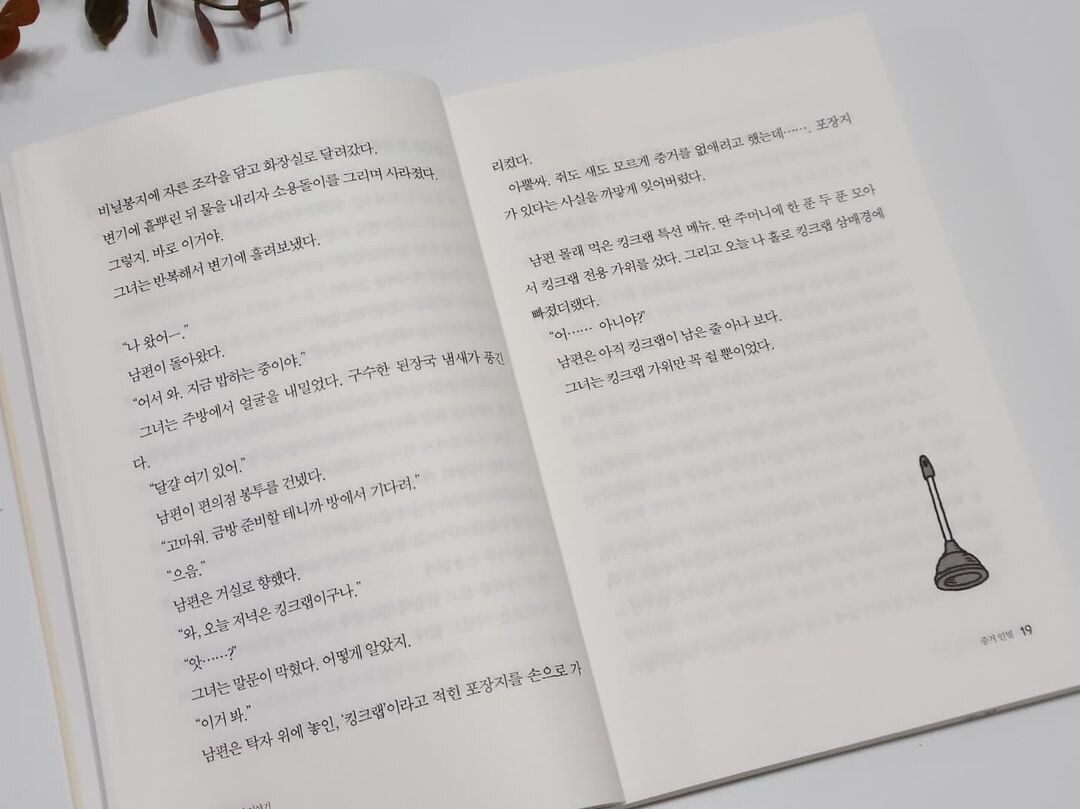 비닐봉지에 자른 조각을 담고 화장실로 달려갔다.
변기에 흩뿌린 뒤 물을 내리자 소용돌이를 그리며 사라졌다.
그렇지. 바로 이거야.
그녀는 반복해서 변기에 흘려보냈다.
“나 왔어―.”
남편이 돌아왔다.
“어서 와. 지금 밥하는 중이야.”
그녀는 주방에서 얼굴을 내밀었다. 구수한 된장국 냄새가 풍긴
다.
“달걀 여기 있어.”
남편이 편의점 봉투를 건넸다.
“고마워. 금방 준비할 테니까 방에서 기다려.”
“으음.”
남편은 거실로 향했다.
“와, 오늘 저녁은 킹크랩이구나.”
“앗……?”
그녀는 말문이 막혔다. 어떻게 알았지.
“이거 봐.”
남편은 탁자 위에 놓인, ‘킹크랩’이라고 적힌 포장지를 손으로 가
리켰다.
아뿔싸. 쥐도 새도 모르게 증거를 없애려고 했는데……. 포장지
가 있다는 사실을 까맣게 잊어버렸다.
남편 몰래 먹은 킹크랩 특선 메뉴. 딴 주머니에 한 푼 두 푼 모아
서 킹크랩 전용 가위를 샀다. 그리고 오늘 나 홀로 킹크랩 삼매경에
빠졌더랬다.
“어…… 아니야?”
남편은 아직 킹크랩이 남은 줄 아나 보다.
그녀는 킹크랩 가위만 꼭 쥘 뿐이었다.
증거 인멸 19